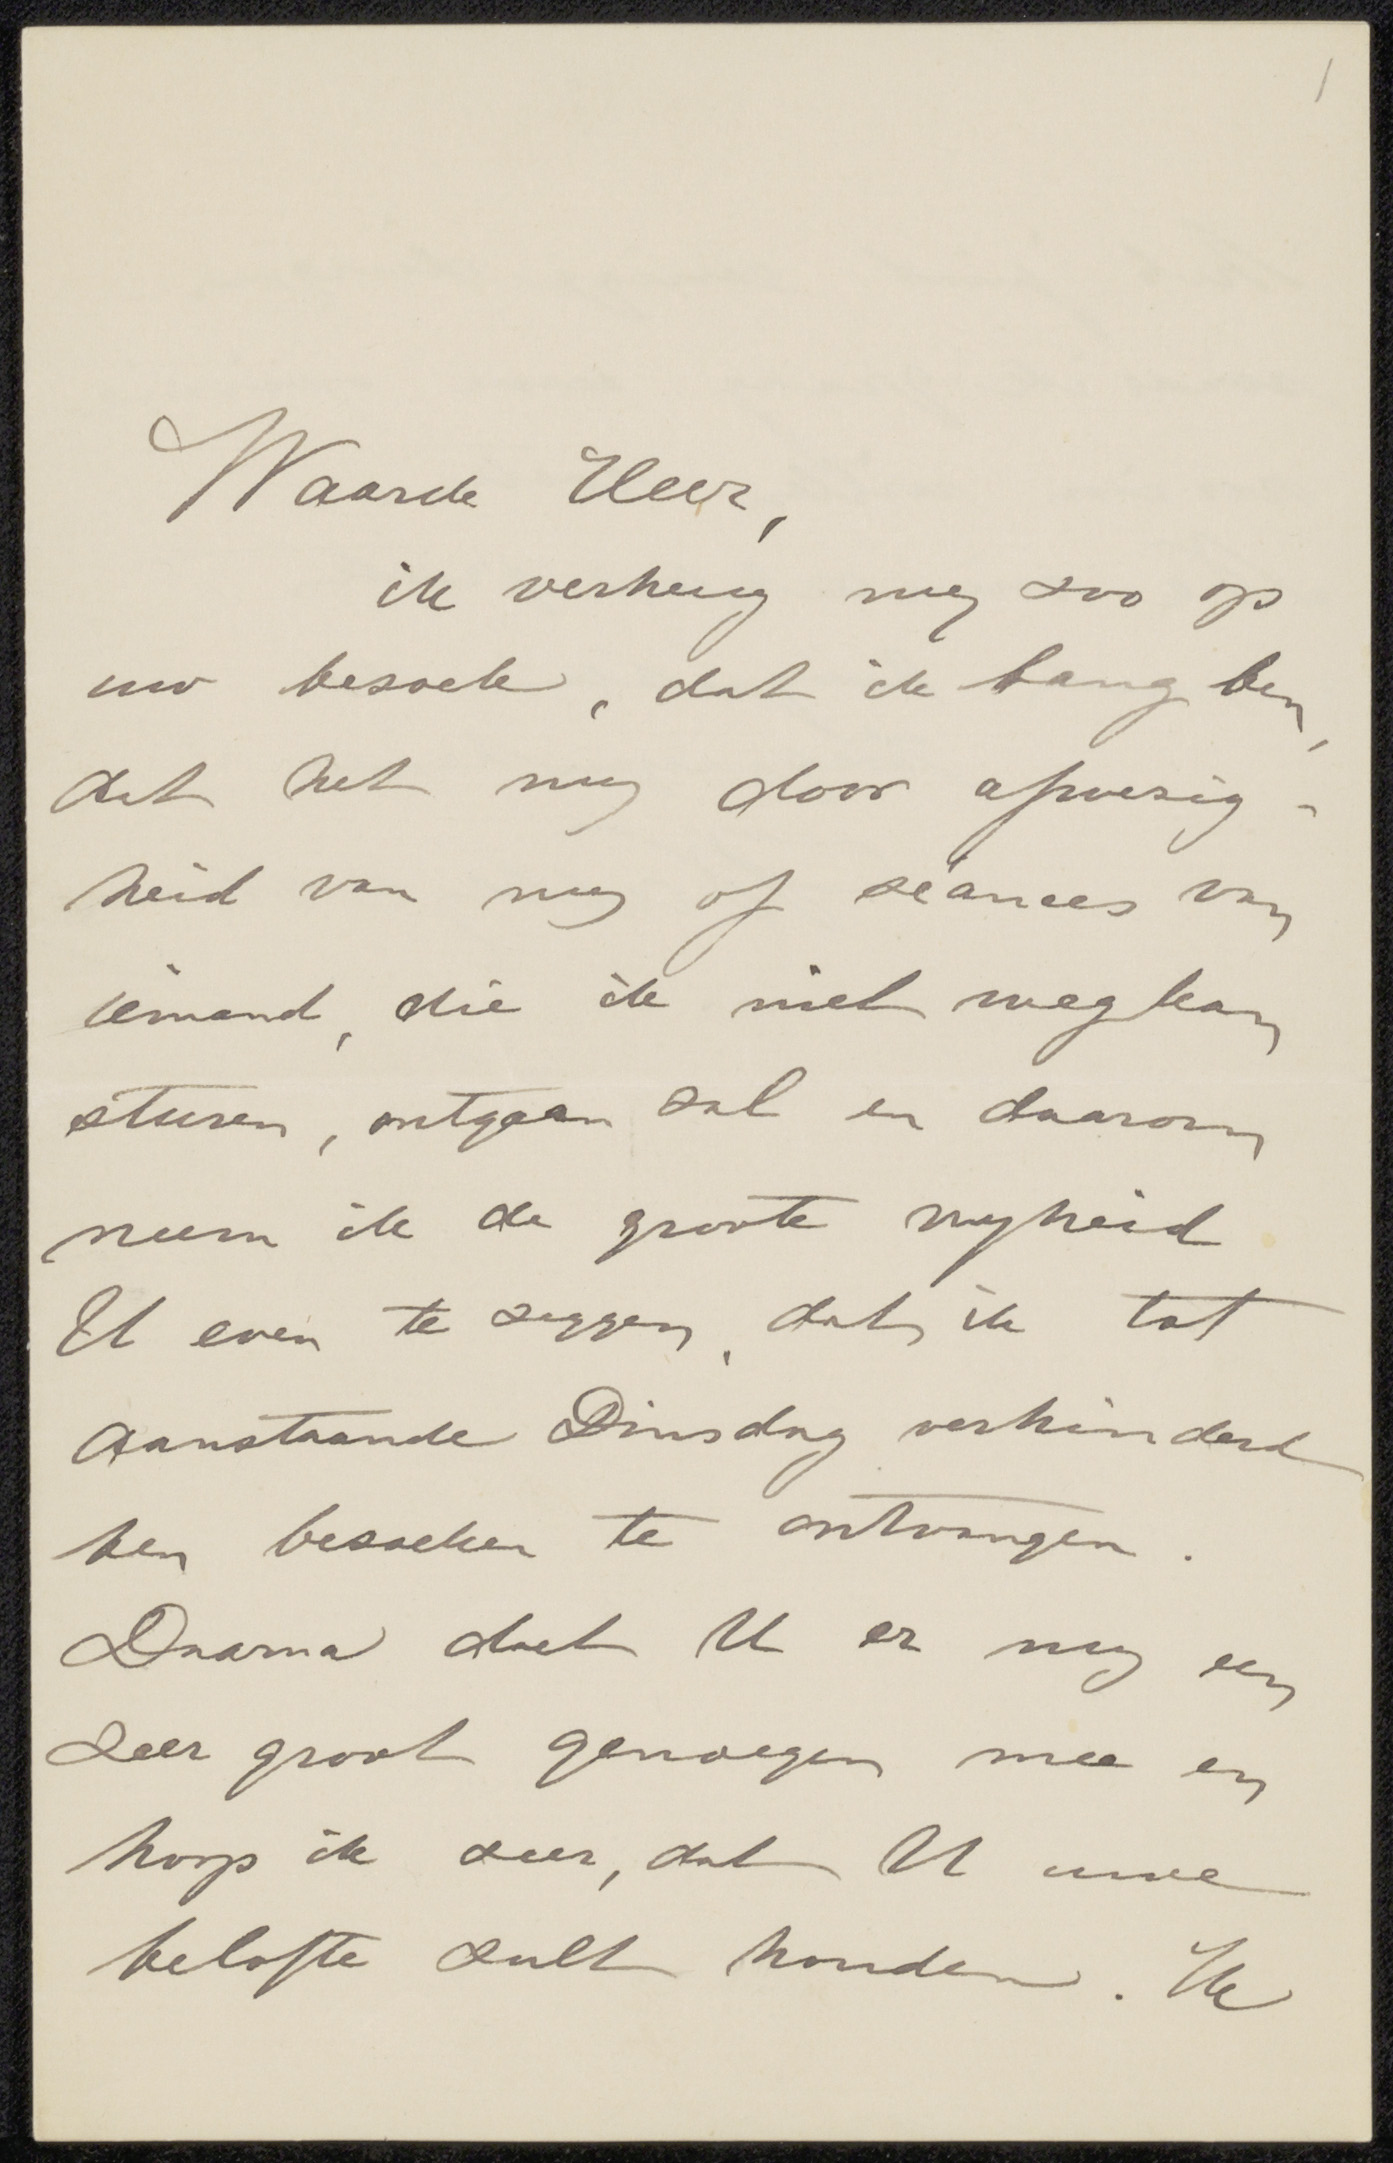 1
Waarde Heer,
ik verheug mij zoo op
uw bezoek, dat ik bang ben,
dat het mij door afwezig-
heid van mij of séances van
iemand, die ik niet weg kan
sturen, ontgaan zal en daarom
neem ik de groote vrijheid
U even te zeggen, dat ik tot
aanstaande Dinsdag verhinderd
ben bezoeken te ontvangen.
Daarna doet U er mij een
zeer groot genoegen mee en
hoop ik zeer, dat U uwe
belofte zult houden. Ik